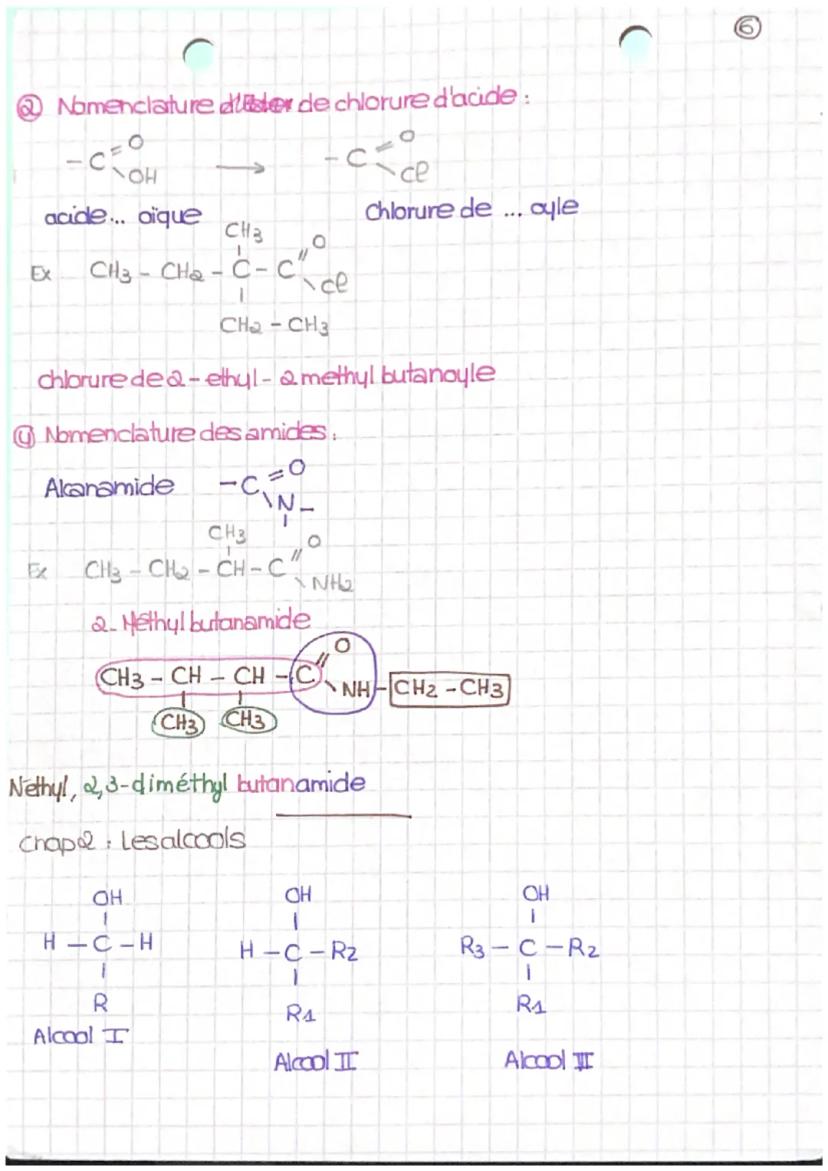 ⑥
② Nomenclature d'Ester de chlorure d'acide :
- C = O \ OH → - C = O \ Cl
acide... oïque Chlorure de ... oyle
CH3 O
Ex CH3 - CH2 - C - C \ Cl
CH2 - CH3
chlorure de 2 - ethyl - 2 methyl butanoyle
④ Nomenclature des amides :
Alcanamide - C = O \ N -
CH3 O
Ex CH3 - CH2 - CH - C \ NH2
2 - Méthyl butanamide
O
CH3 - CH - CH - C \ NH - CH2 - CH3
CH3 CH3
Nethyl, 2,3-diméthyl butanamide
Chap 2 : Les alcools
OH OH OH
H - C - H H - C - R2 R3 - C - R2
R R1 R1
Alcool I Alcool II Alcool III